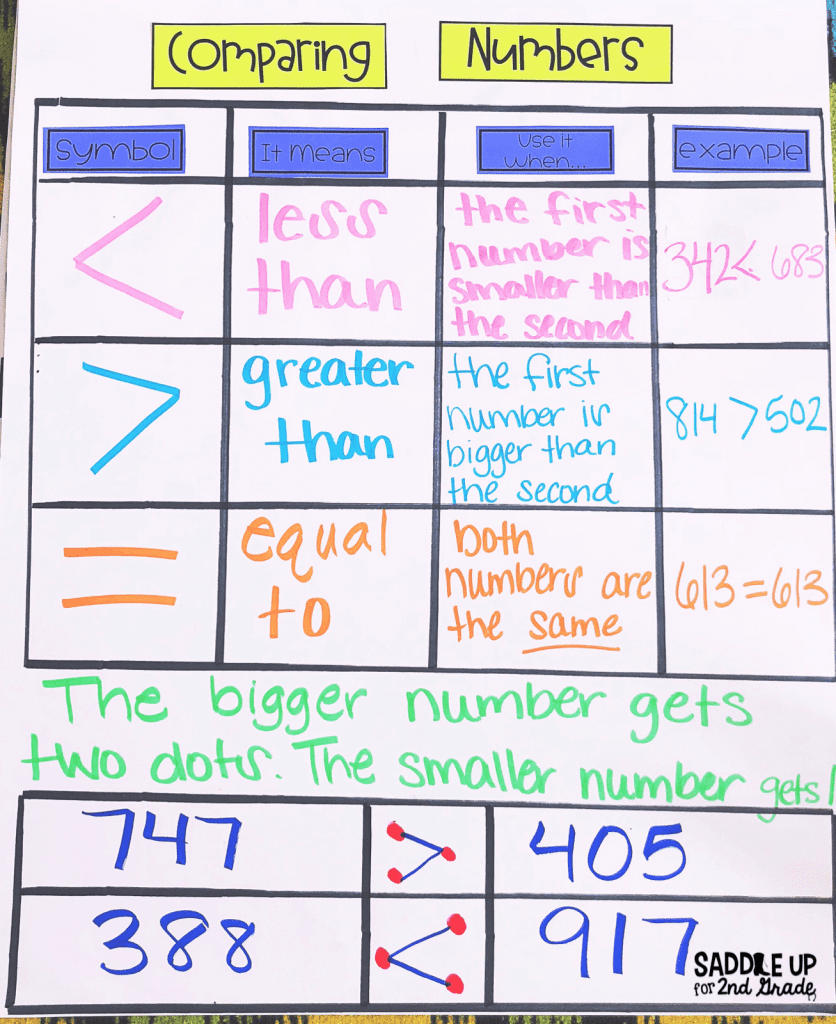 Comparing Numbers
Symbol It means Use it when... example
<
less
than
the first
number is
smaller than
the second
342 < 683
>
greater
than
the first
number is
bigger than
the second
814 > 502
=
equal
to
both
numbers are
the same
613 = 613
The bigger number gets
two dots. The smaller number gets 1
747 > 405
388 < 917
SADDLE UP
for 2nd Grade